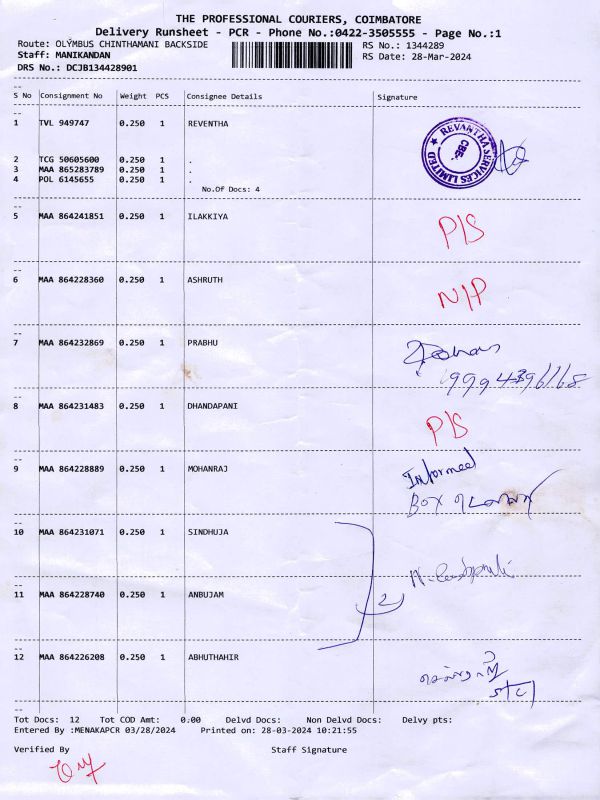 THE PROFESSIONAL COURIERS, COIMBATORE
Delivery Runsheet - PCR - Phone No.:0422-3505555 - Page No.:1
Route: OLYMBUS CHINTHAMANI BACKSIDE RS No.: 1344289
Staff: MANIKANDAN RS Date: 28-Mar-2024
DRS No.: DCJB134428901
S No Consignment No Weight PCS Consignee Details Signature
1 TVL 949747 0.250 1 REVENTHA
REVANTHA SERVICES LIMITED
CBE.
2 TCG 50605600 0.250 1 .
3 MAA 865283789 0.250 1 .
4 POL 6145655 0.250 1 .
No.Of Docs: 4
5 MAA 864241851 0.250 1 ILAKKIYA P/S
6 MAA 864228360 0.250 1 ASHRUTH N/P
7 MAA 864232869 0.250 1 PRABHU
8 MAA 864231483 0.250 1 DHANDAPANI P/S
9 MAA 864228889 0.250 1 MOHANRAJ Informed
Box
10 MAA 864231071 0.250 1 SINDHUJA
11 MAA 864228740 0.250 1 ANBUJAM 2
12 MAA 864226208 0.250 1 ABHUTHAHIR
Tot Docs: 12 Tot COD Amt: 0.00 Delvd Docs: Non Delvd Docs: Delvy pts:
Entered By :MENAKAPCR 03/28/2024 Printed on: 28-03-2024 10:21:55
Verified By Staff Signature